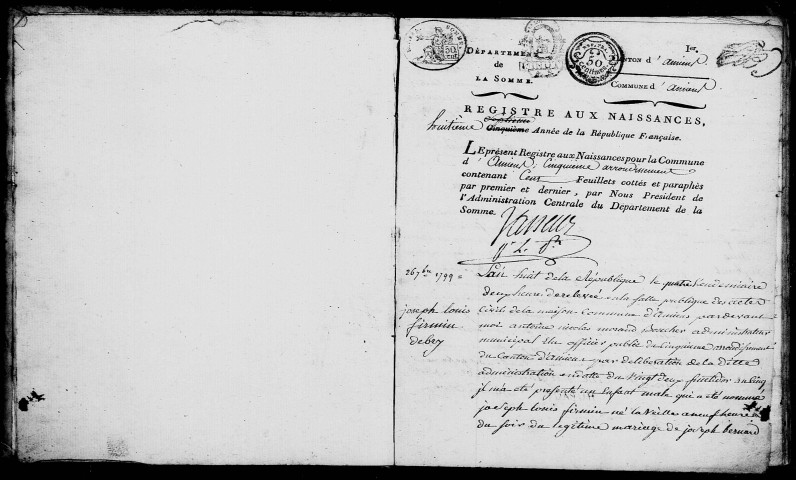 DÉPARTEMENT
de
LA SOMME.
1er.
CANTON d'amiens
COMMUNE d'amiens
REGISTRE AUX NAISSANCES,
huitième Cinquième Année de la République Française.
LE présent Registre aux Naissances pour la Commune
d'Amiens, Cinquieme arrondissement
contenant Cent Feuillets cottés et paraphés
par premier et dernier, par Nous President de
l'Administration Centrale du Département de la
Somme.
26 7bre 1799 = L'an huit de la République le quatre Vendemiaire
deux heures de relevée en la salle publique des actes
joseph louis
firmin
debry
Civils de la maison Commune d'amiens pardevant
moi antoine nicolas morand administrateur
municipal Elu officier public du Cinquieme arrondissement
du Canton d'amiens par deliberation de la Ditte
administration en datte du Vingt deux fructidor an Cinq
il m'a eté presenté un Enfant male qui a eté nommé
joseph louis firmin né la Veille a neuf heures
du soir du legitime mariage de joseph bernard